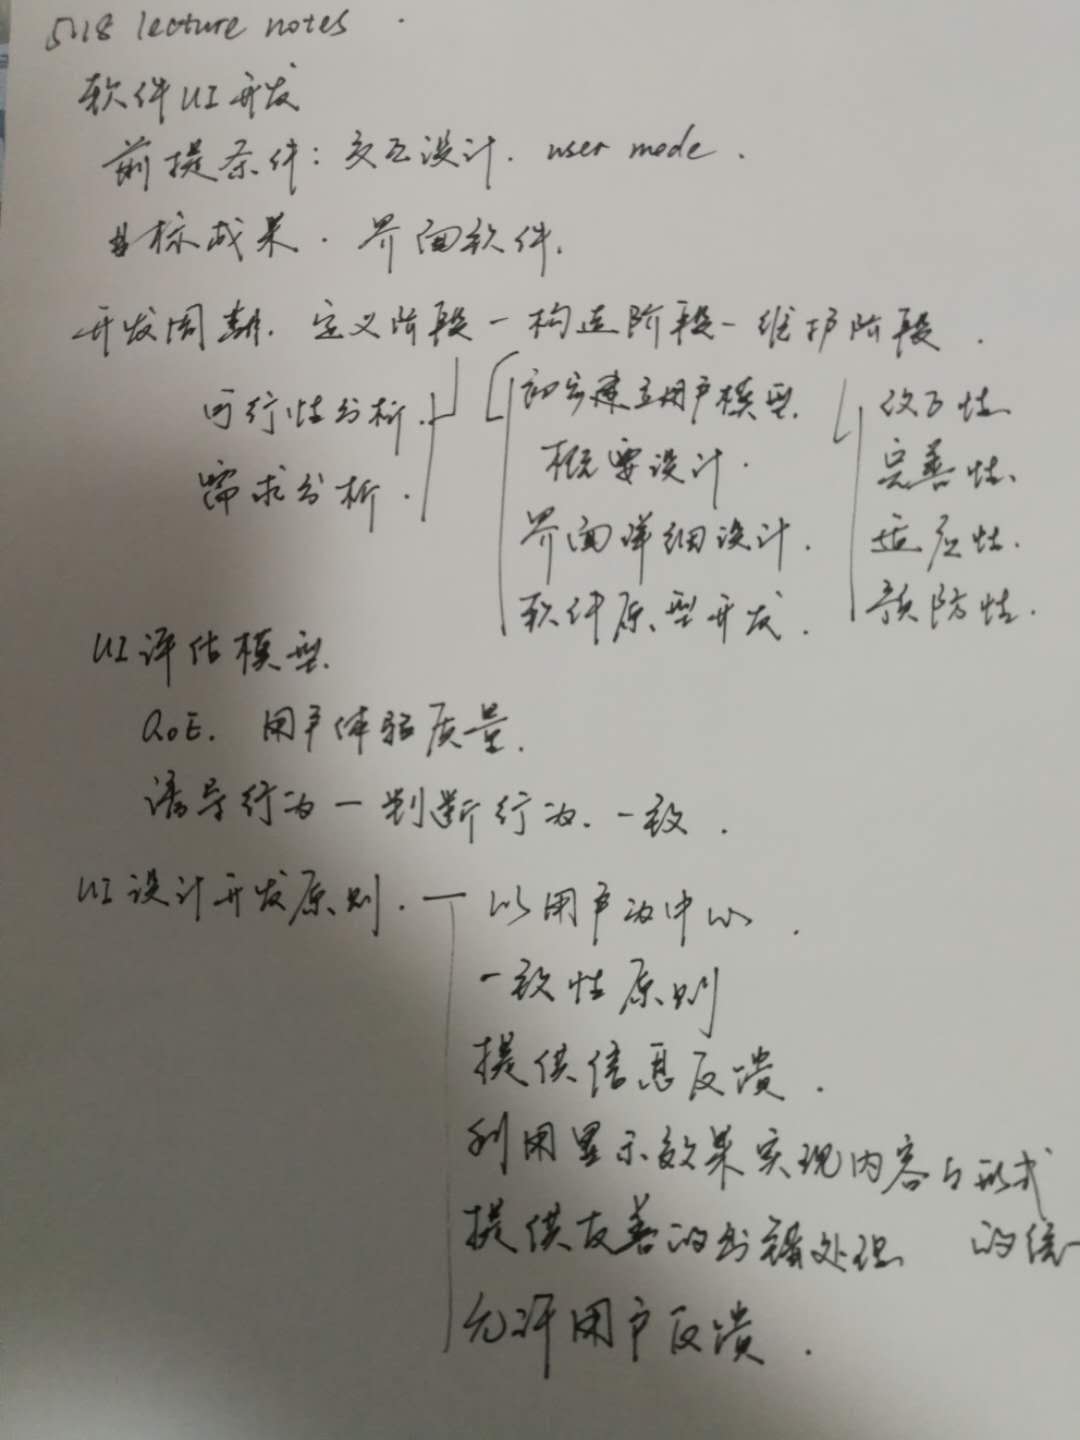 5.18 lecture notes.
软件UI开发
前提条件：交互设计. user mode.
目标成果. 界面软件.
开发周期. 定义阶段-构造阶段-维护阶段.
可行性分析.
需求分析.
初步建立用户模型
概要设计.
界面详细设计.
软件原型开发.
改正性
完善性、
适应性.
预防性.
UI评估模型.
QoE. 用户体验质量.
诱导行为-判断行为. 一致.
UI设计开发原则. — 以用户为中心.
一致性原则
提供信息反馈.
利用显示效果实现内容与形式
的统一
提供友善的出错处理
允许用户反馈.